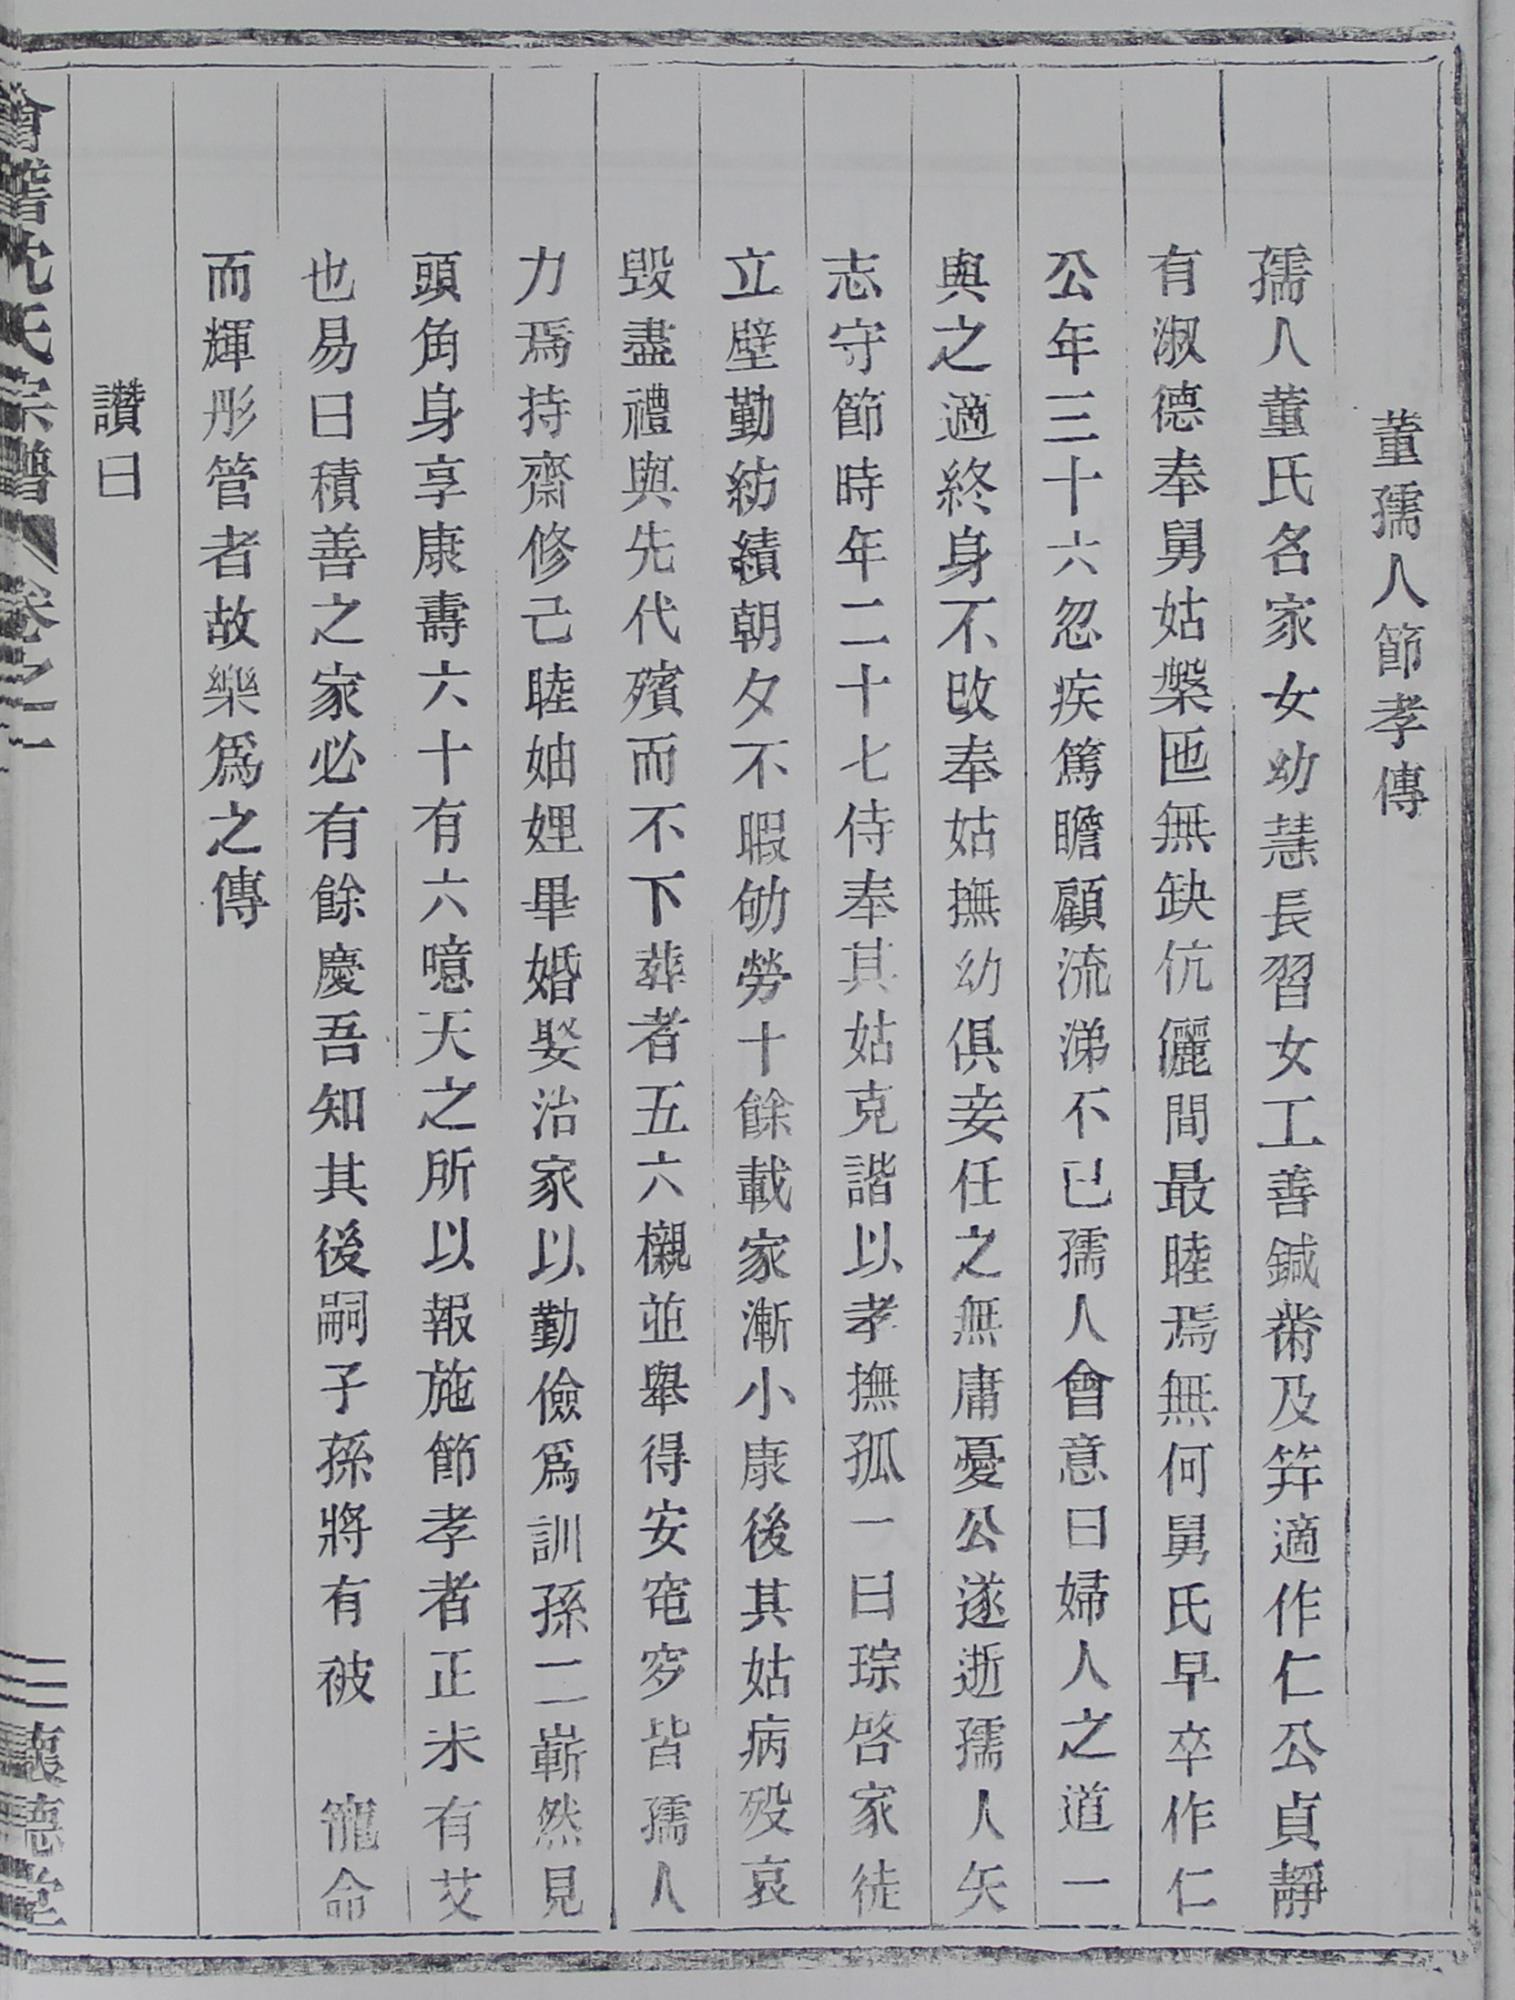 董孺人節孝傳
孺人董氏名家女幼慧長習女工善鍼黹及笄適作仁公貞靜
有淑德奉舅姑槃匜無缺伉儷間最睦焉無何舅氏早卒作仁
公年三十六忽疾篤瞻顧流涕不已孺人會意曰婦人之道一
與之適終身不改奉姑撫幼俱妾任之無庸憂公遂逝孺人矢
志守節時年二十七侍奉其姑克諧以孝撫孤一曰琮啓家徒
立壁勤紡績朝夕不暇劬勞十餘載家漸小康後其姑病歿哀
毀盡禮與先代殯而不下葬者五六櫬並舉得安窀穸皆孺人
力焉持齋修己睦妯娌畢婚娶治家以勤儉爲訓孫二嶄然見
頭角身享康壽六十有六噫天之所以報施節孝者正未有艾
也易曰積善之家必有餘慶吾知其後嗣子孫將有被 寵命
而輝彤管者故樂爲之傳
讚曰
會稽沈氏宗譜 卷之十一 三 懷德堂